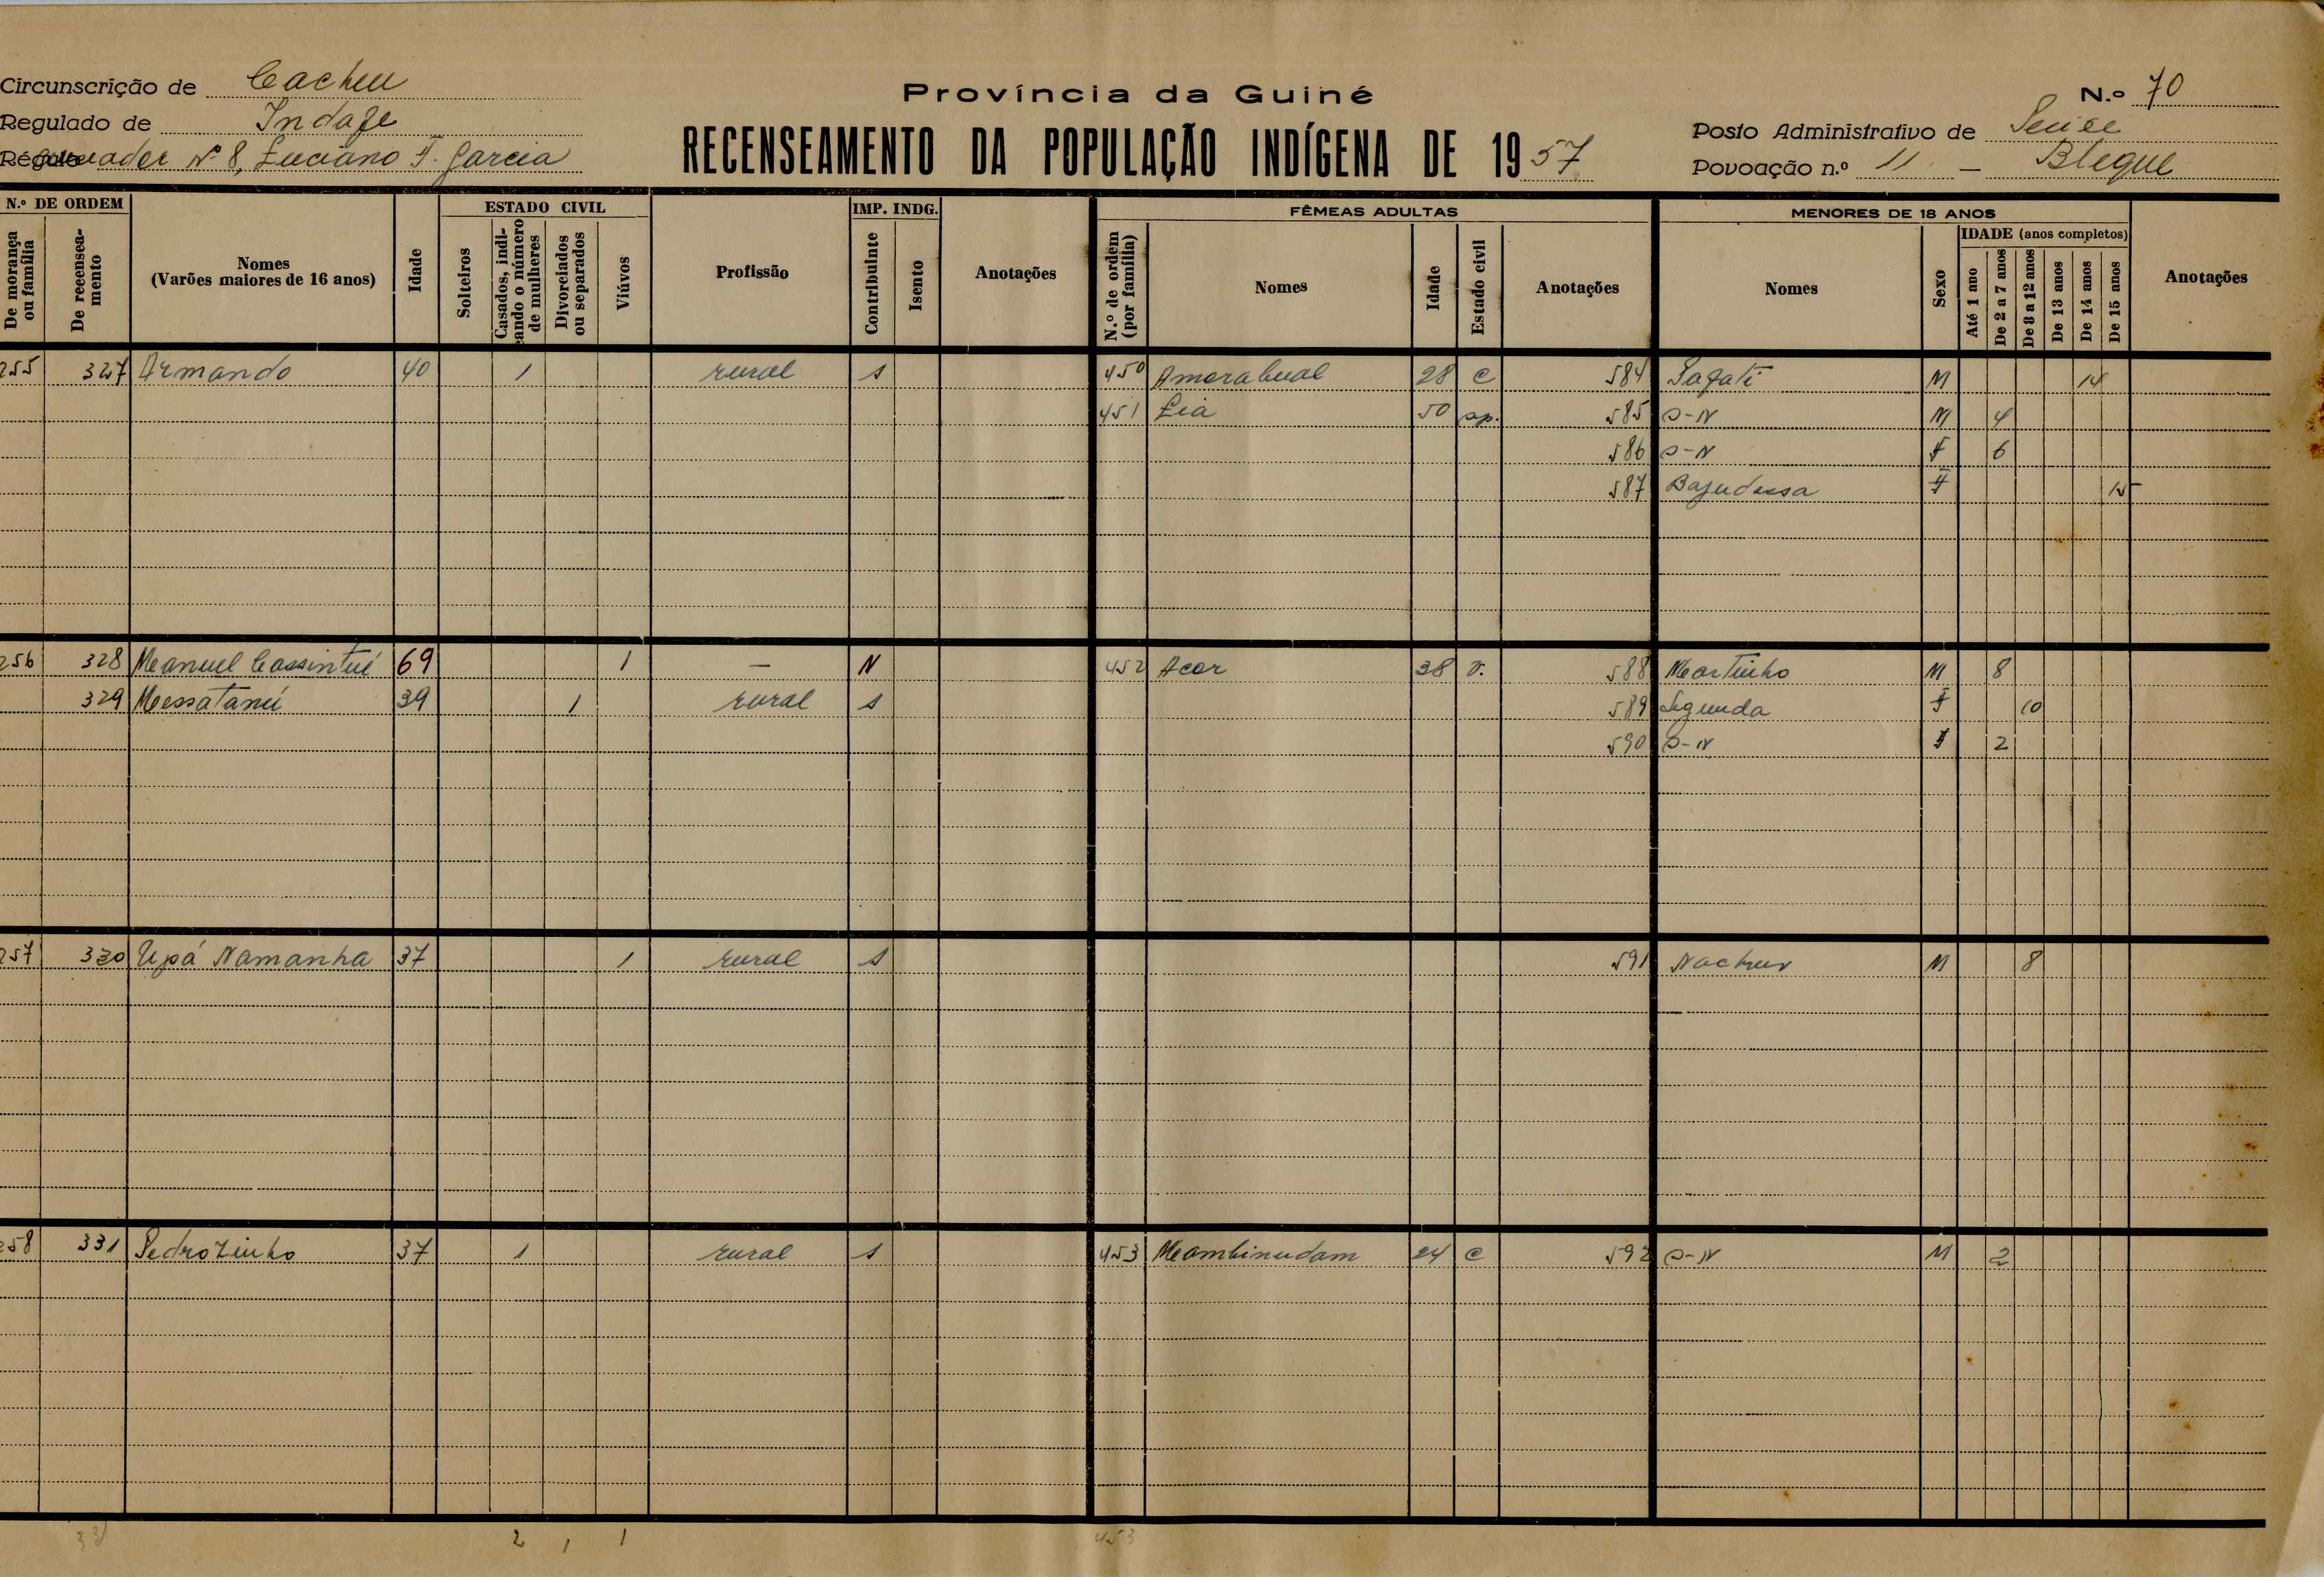 Circunscrição de Cacheu
Regulado de Indafe
Régulo nº 8, Luciano F. Garcia
Província da Guiné
RECENSEAMENTO DA POPULAÇÃO INDÍGENA DE 1957
N.º 70
Posto Administrativo de
Povoação n.º 11 - Bleque
N.º DE ORDEM
De morança ou família
De recenseamento
Nomes
(Varões maiores de 16 anos)
Idade
ESTADO CIVIL
Solteiros
Casados, indicando o número de mulheres
Divorciados ou separados
Viúvos
Profissão
IMP. INDG.
Contribuinte
Isento
Anotações
FÊMEAS ADULTAS
N.º de ordem (por família)
Nomes
Idade
Estado civil
Anotações
MENORES DE 18 ANOS
Nomes
Sexo
IDADE (anos completos)
Até 1 ano
De 2 a 7 anos
De 8 a 12 anos
De 13 anos
De 14 anos
De 15 anos
Anotações
255 327 Armando 40 1 rural s 450 Amorabual 28 C 584 Safati M 14
451 Lia 50 sp. 585 S-N M 4
586 S-N F 6
587 F 15
256 328 Manuel Cassintui 69 1 — N 452 Acor 38 V. 588 Martinho M 8
329 Messatanú 39 1 rural s 589 Segunda F 10
590 S-N F 2
257 330 Upá Namanha 37 1 rural s 591 M 8
258 331 Pedrozinho 37 1 rural s 453 Mambinudam 24 C 592 S-N M 2
2 1 1 453